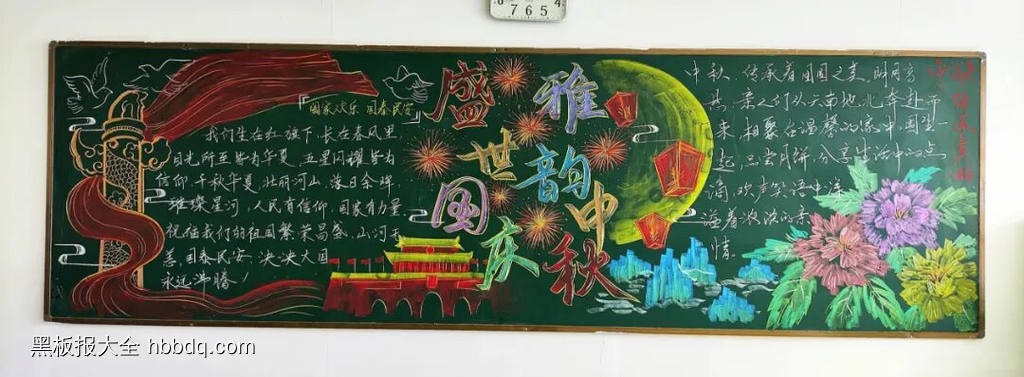 7 6 5 4
国家欢乐 国泰民安
我们生在红旗下,长在春风里
目光所至皆为华夏,五星闪耀皆为
信仰,千秋华夏,壮丽河山,落日余晖,
璀璨星河,人民有信仰,国家有力量
祝福我们的祖国繁荣昌盛,山河无
恙,国泰民安,泱泱大国
永远沸腾!
盛世国庆
雅韵中秋
中秋,传承着团圆之美,明月
共,亲人们从天南地北奔赴
来,相聚在温馨的家中围坐一
起,品尝月饼,分享生活中的点
滴,欢声笑语中洋
溢着浓浓的亲
情。
黑板报大全 hbbdq.com